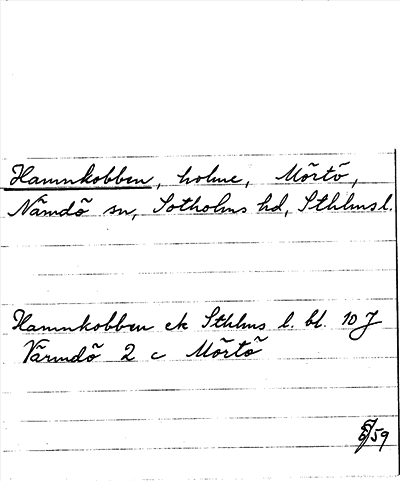 Hamnkobben, holme, Mörtö,
Nämdö sn, Sotholms hd, Sthlms l.
Hamnkobben ek Sthlms l. bl. 10 J
Värmdö 2 c Mörtö
59